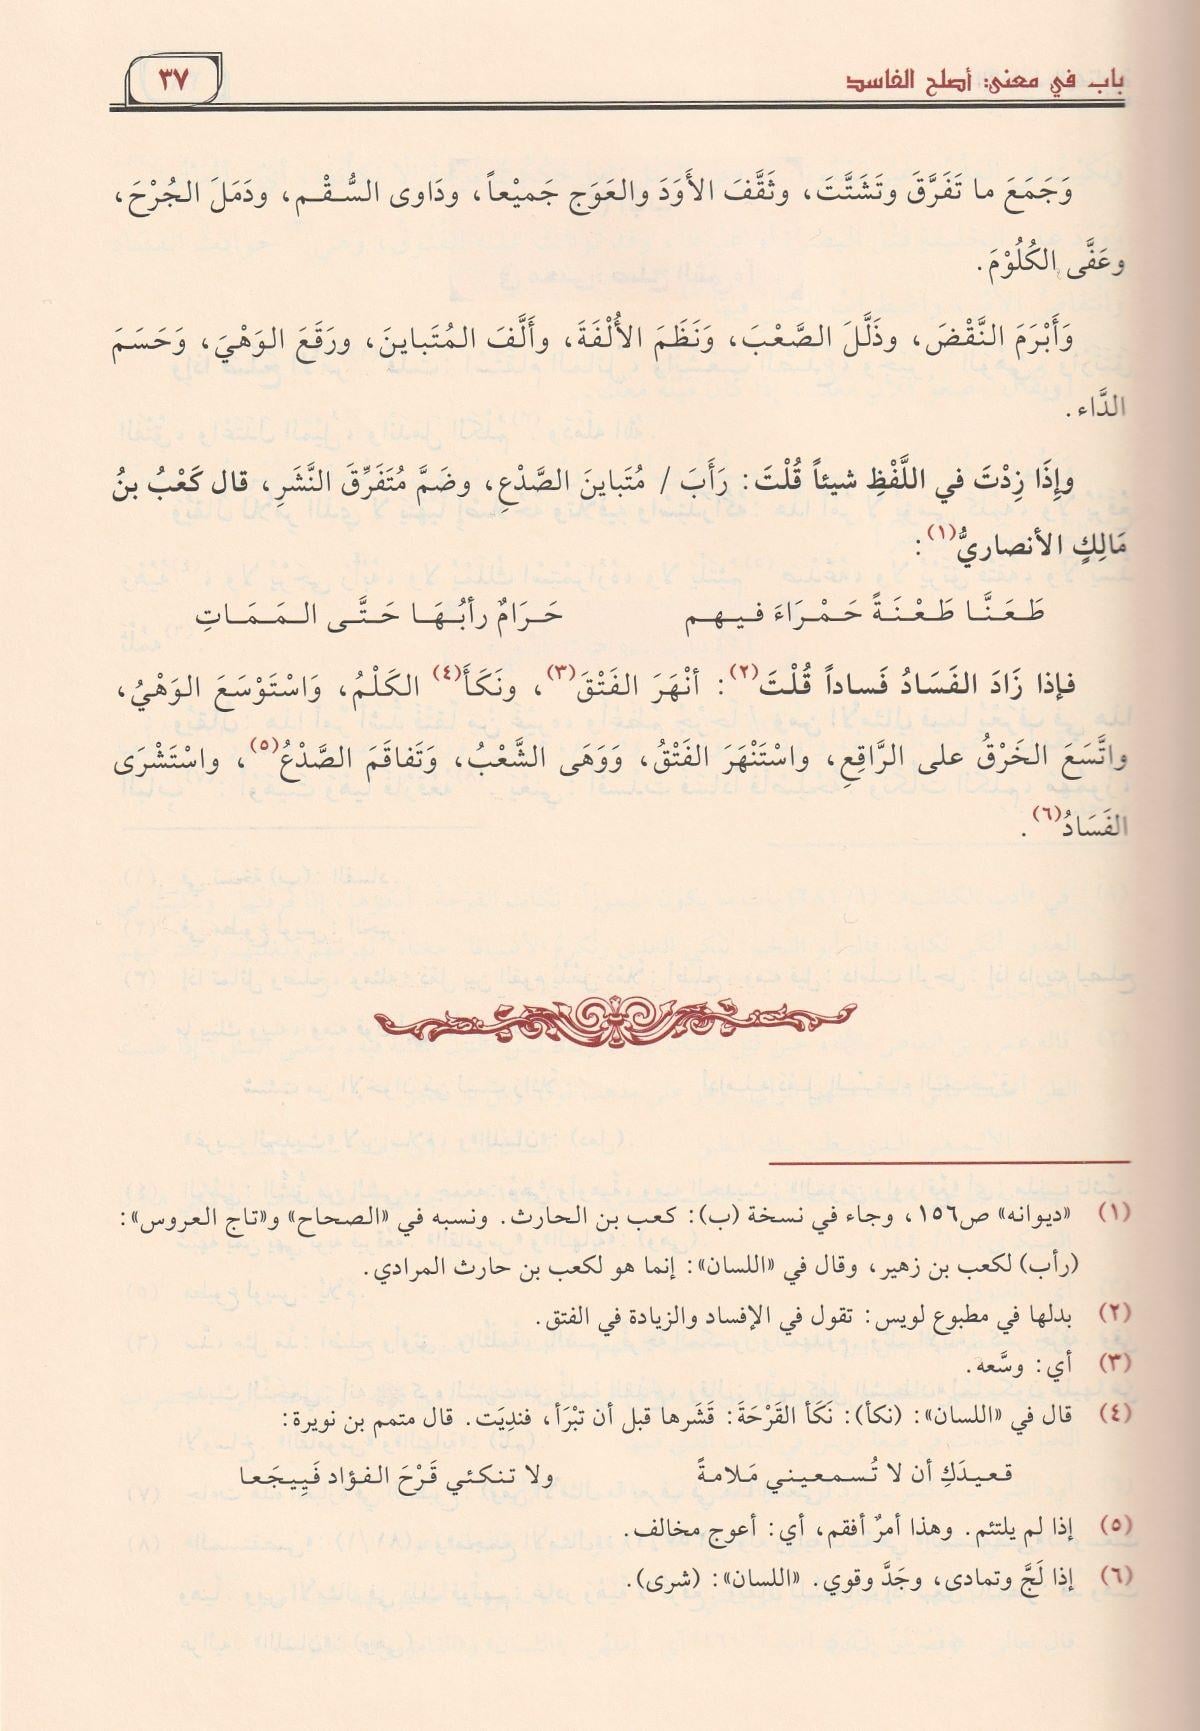 باب في معنى: أصلح الفاسد
٣٧
وَجَمَعَ ما تَفَرَّقَ وتَشَتَّتَ، وثَقَّفَ الأَوَدَ والعَوَج جَميْعاً، ودَاوى السُّقْم، ودَمَلَ الجُرْحَ،
وعَفَّى الكُلُوْمَ.
وَأَبْرَمَ النَّقْضَ، وذَلَّلَ الصَّعْبَ، وَنَظَمَ الأُلْفَةَ، وألَّفَ المُتَباينَ، ورَقَعَ الوَهْيَ، وَحَسَمَ
الدَّاء.
وإِذَا زِدْتَ في اللَّفْظِ شيئاً قُلْتَ: رَأَبَ / مُتَباينَ الصَّدْعِ، وضَمَّ مُتَفَرِّقَ النَّشَرِ، قال كَعْبُ بنُ
مَالِكٍ الأنصاريُّ(١):
طَعَنَّا طَعْنَةً حَمْرَاءَ فيهم حَرَامٌ رأبُهَا حَتَّى المَمَاتِ
فإذا زَادَ الفَسَادُ فَساداً قُلْتَ(٢): أنْهَرَ الفَتْقَ(٣)، ونَكَأَ(٤) الكَلْمُ، وَاسْتَوْسَعَ الوَهْيُ،
واتَّسَعَ الخَرْقُ على الرَّاقِعِ، واسْتَنْهَرَ الفَتْقُ، وَوَهَى الشَّعْبُ، وَتَفاقَمَ الصَّدْعُ(٥)، واسْتَشْرَى
الفَسَادُ(٦).
(١) «ديوانه» ص١٥٦، وجاء في نسخة (ب): كعب بن الحارث. ونسبه في «الصحاح» و«تاج العروس»:
(رأب) لكعب بن زهير، وقال في «اللسان»: إنما هو لكعب بن حارث المرادي.
(٢) بدلها في مطبوع لويس: تقول في الإفساد والزيادة في الفتق.
(٣) أي: وسَّعه.
(٤) قال في «اللسان»: (نكأ): نَكَأ القَرْحَةَ: قَشَرها قبل أن تبْرَأ، فندِيَت. قال متمم بن نويرة:
قعيدَكِ أن لا تُسمعيني مَلامةً ولا تنكئي قَرْحَ الفؤاد فَييجَعا
(٥) إذا لم يلتئم. وهذا أمرٌ أفقم، أي: أعوج مخالف.
(٦) إذا لَجَّ وتمادى، وجَدَّ وقوي. «اللسان»: (شرى).